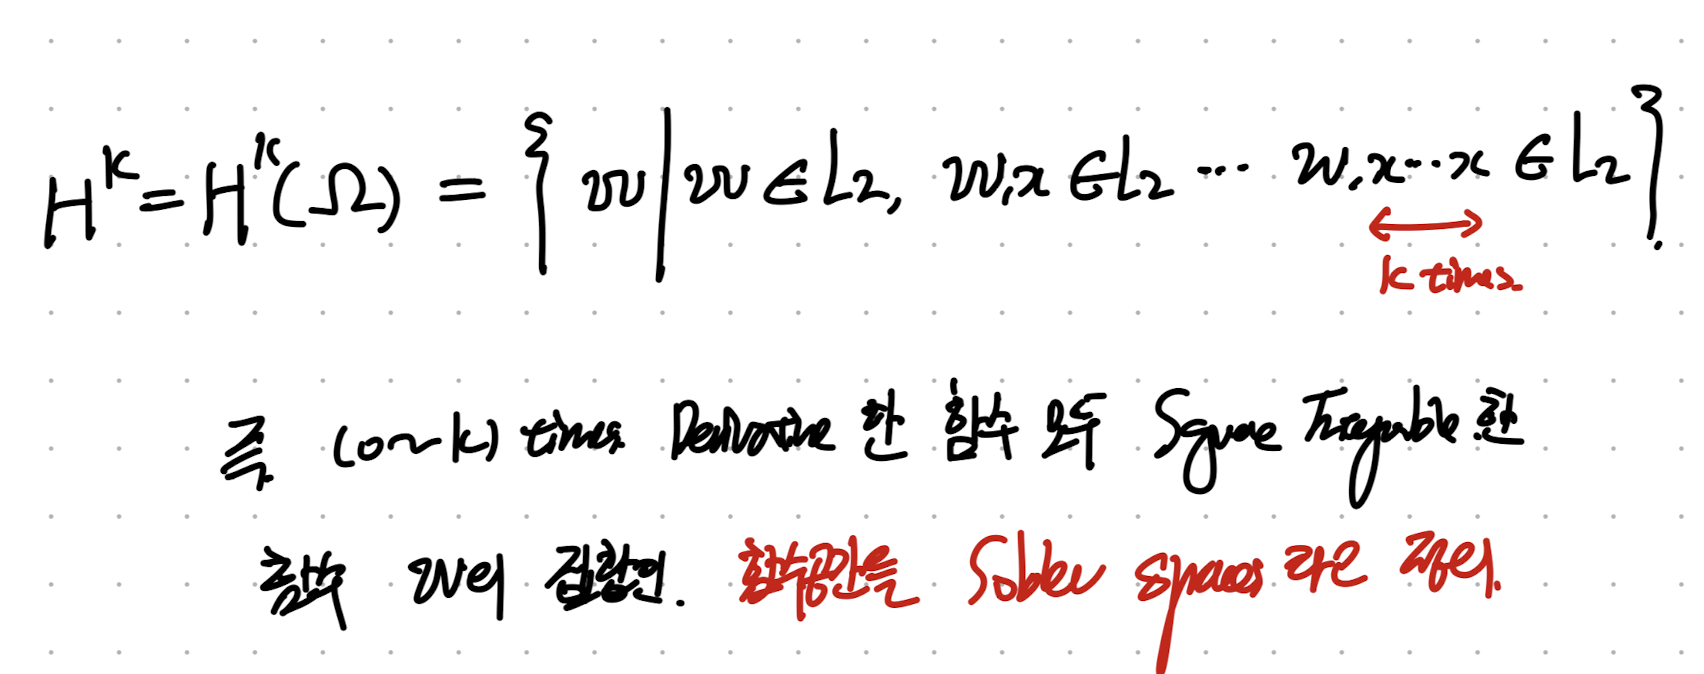 H^k = H^k(Ω) = { w | w ∈ L2, w,x ∈ L2 ... w,x...x ∈ L2 }.
k times.
즉 (0~k) times Derivative 한 함수 모두 Square Integrable 한
함수 w의 집합인. 함수공간을 Sobolev spaces 라고 정의.